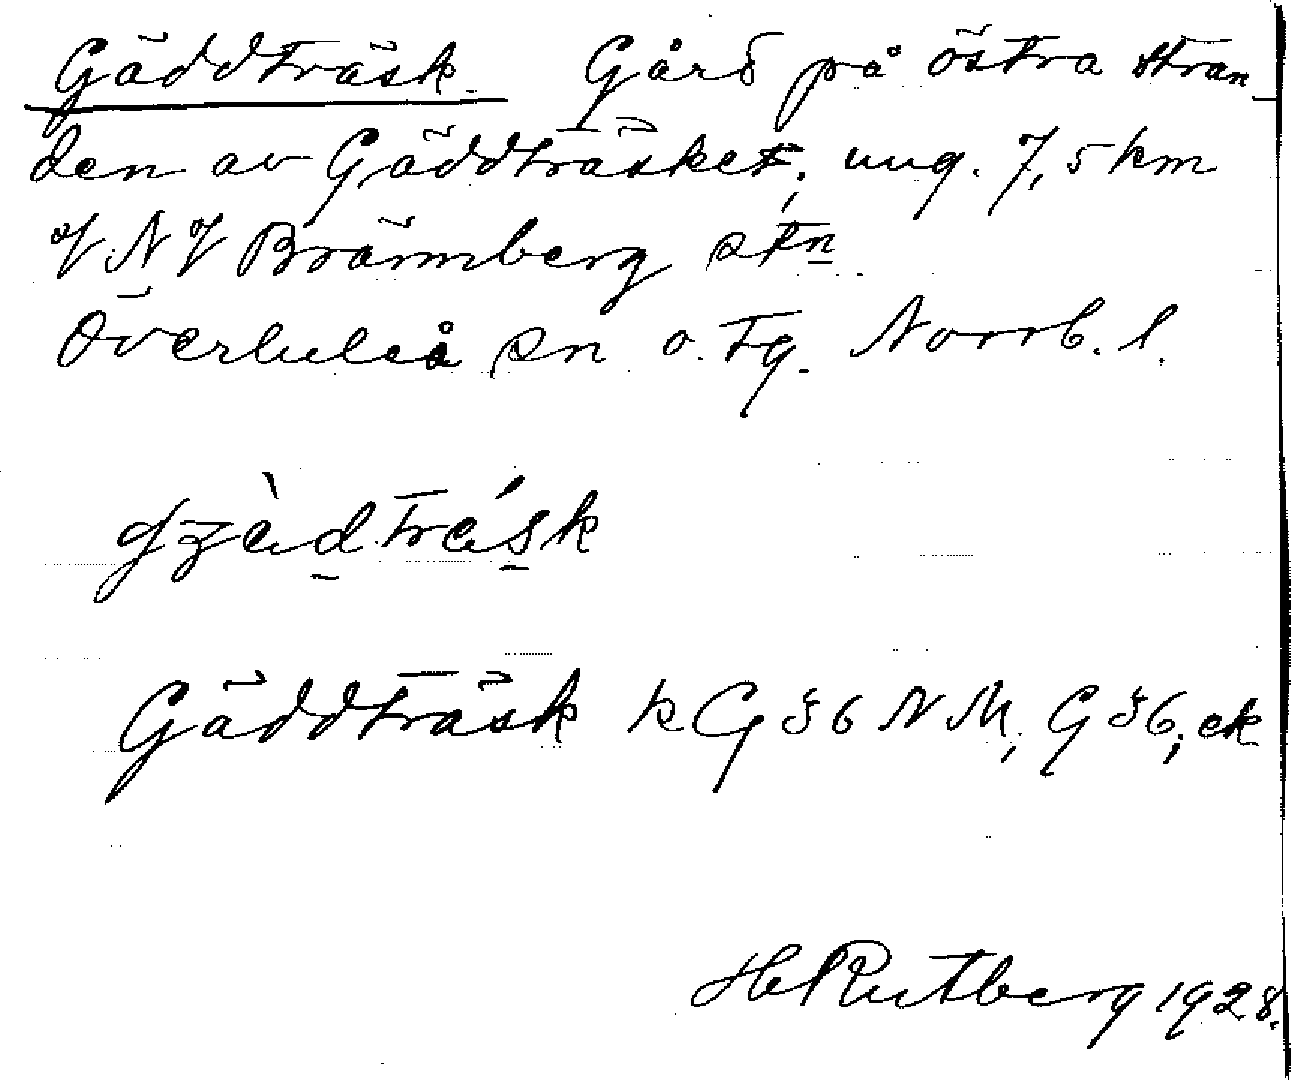 Gäddträsk. Gård på östra stran-
den av Gäddträsket, ung. 7,5 km
VNV Brännberg stn.
Överluleå sn o. tg. Norrb. l.
Gäddträsk k G 36 NM, G 36, ek
H Rutberg 1928.